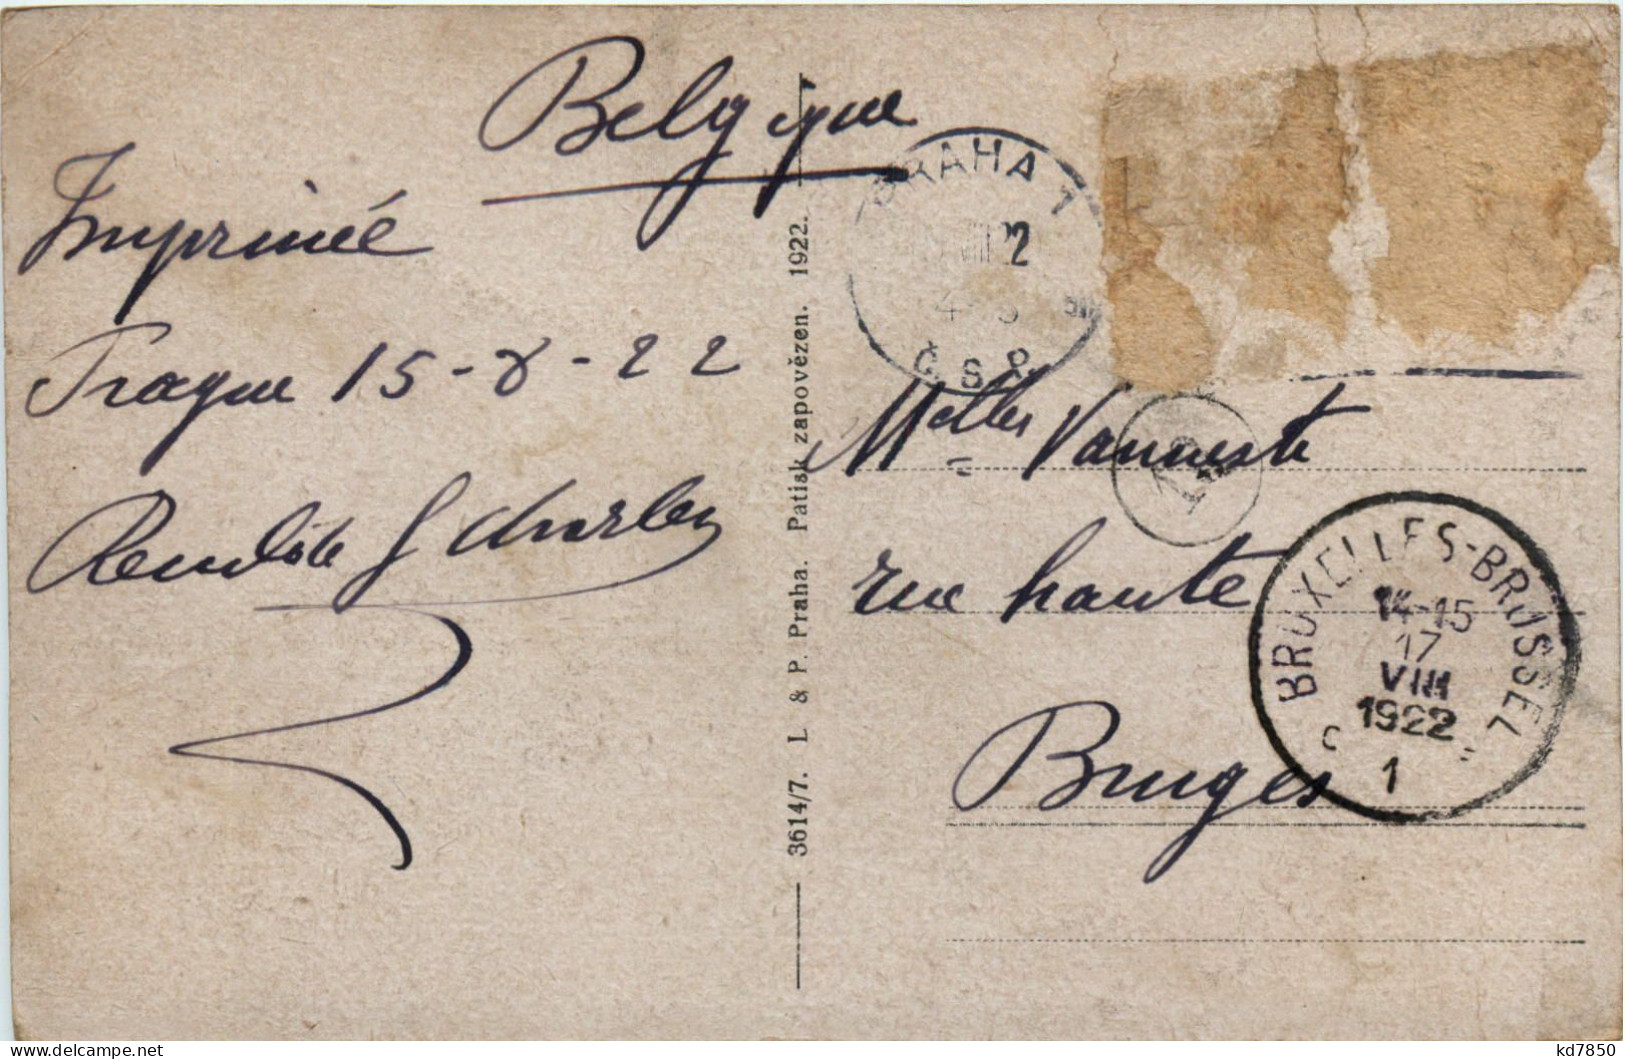 Belgique
Imprimée
Prague 15-8-22
PRAHA 1
VIII 22
4-5
ČSR
Melles Vanneste
rue haute
Bruges
13
BRUXELLES-BRUSSEL
14-15
17
VIII
1922
1
3614/7. L & P. Praha. Patisk zapovězen. 1922.
kd7850